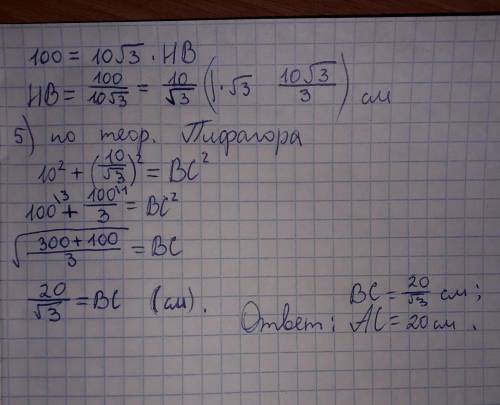 100 = 10√3 · HB
HB = 100/10√3 = 10/√3 (|·√3 10√3/3) см
5) по теор. Пифагора
10² + (10/√3)² = BC²
100\³ + 100\¹/3 = BC²
√((300+100)/3) = BC
20/√3 = BC (см).
BC = 20/√3 см;
Ответ: AC = 20 см.